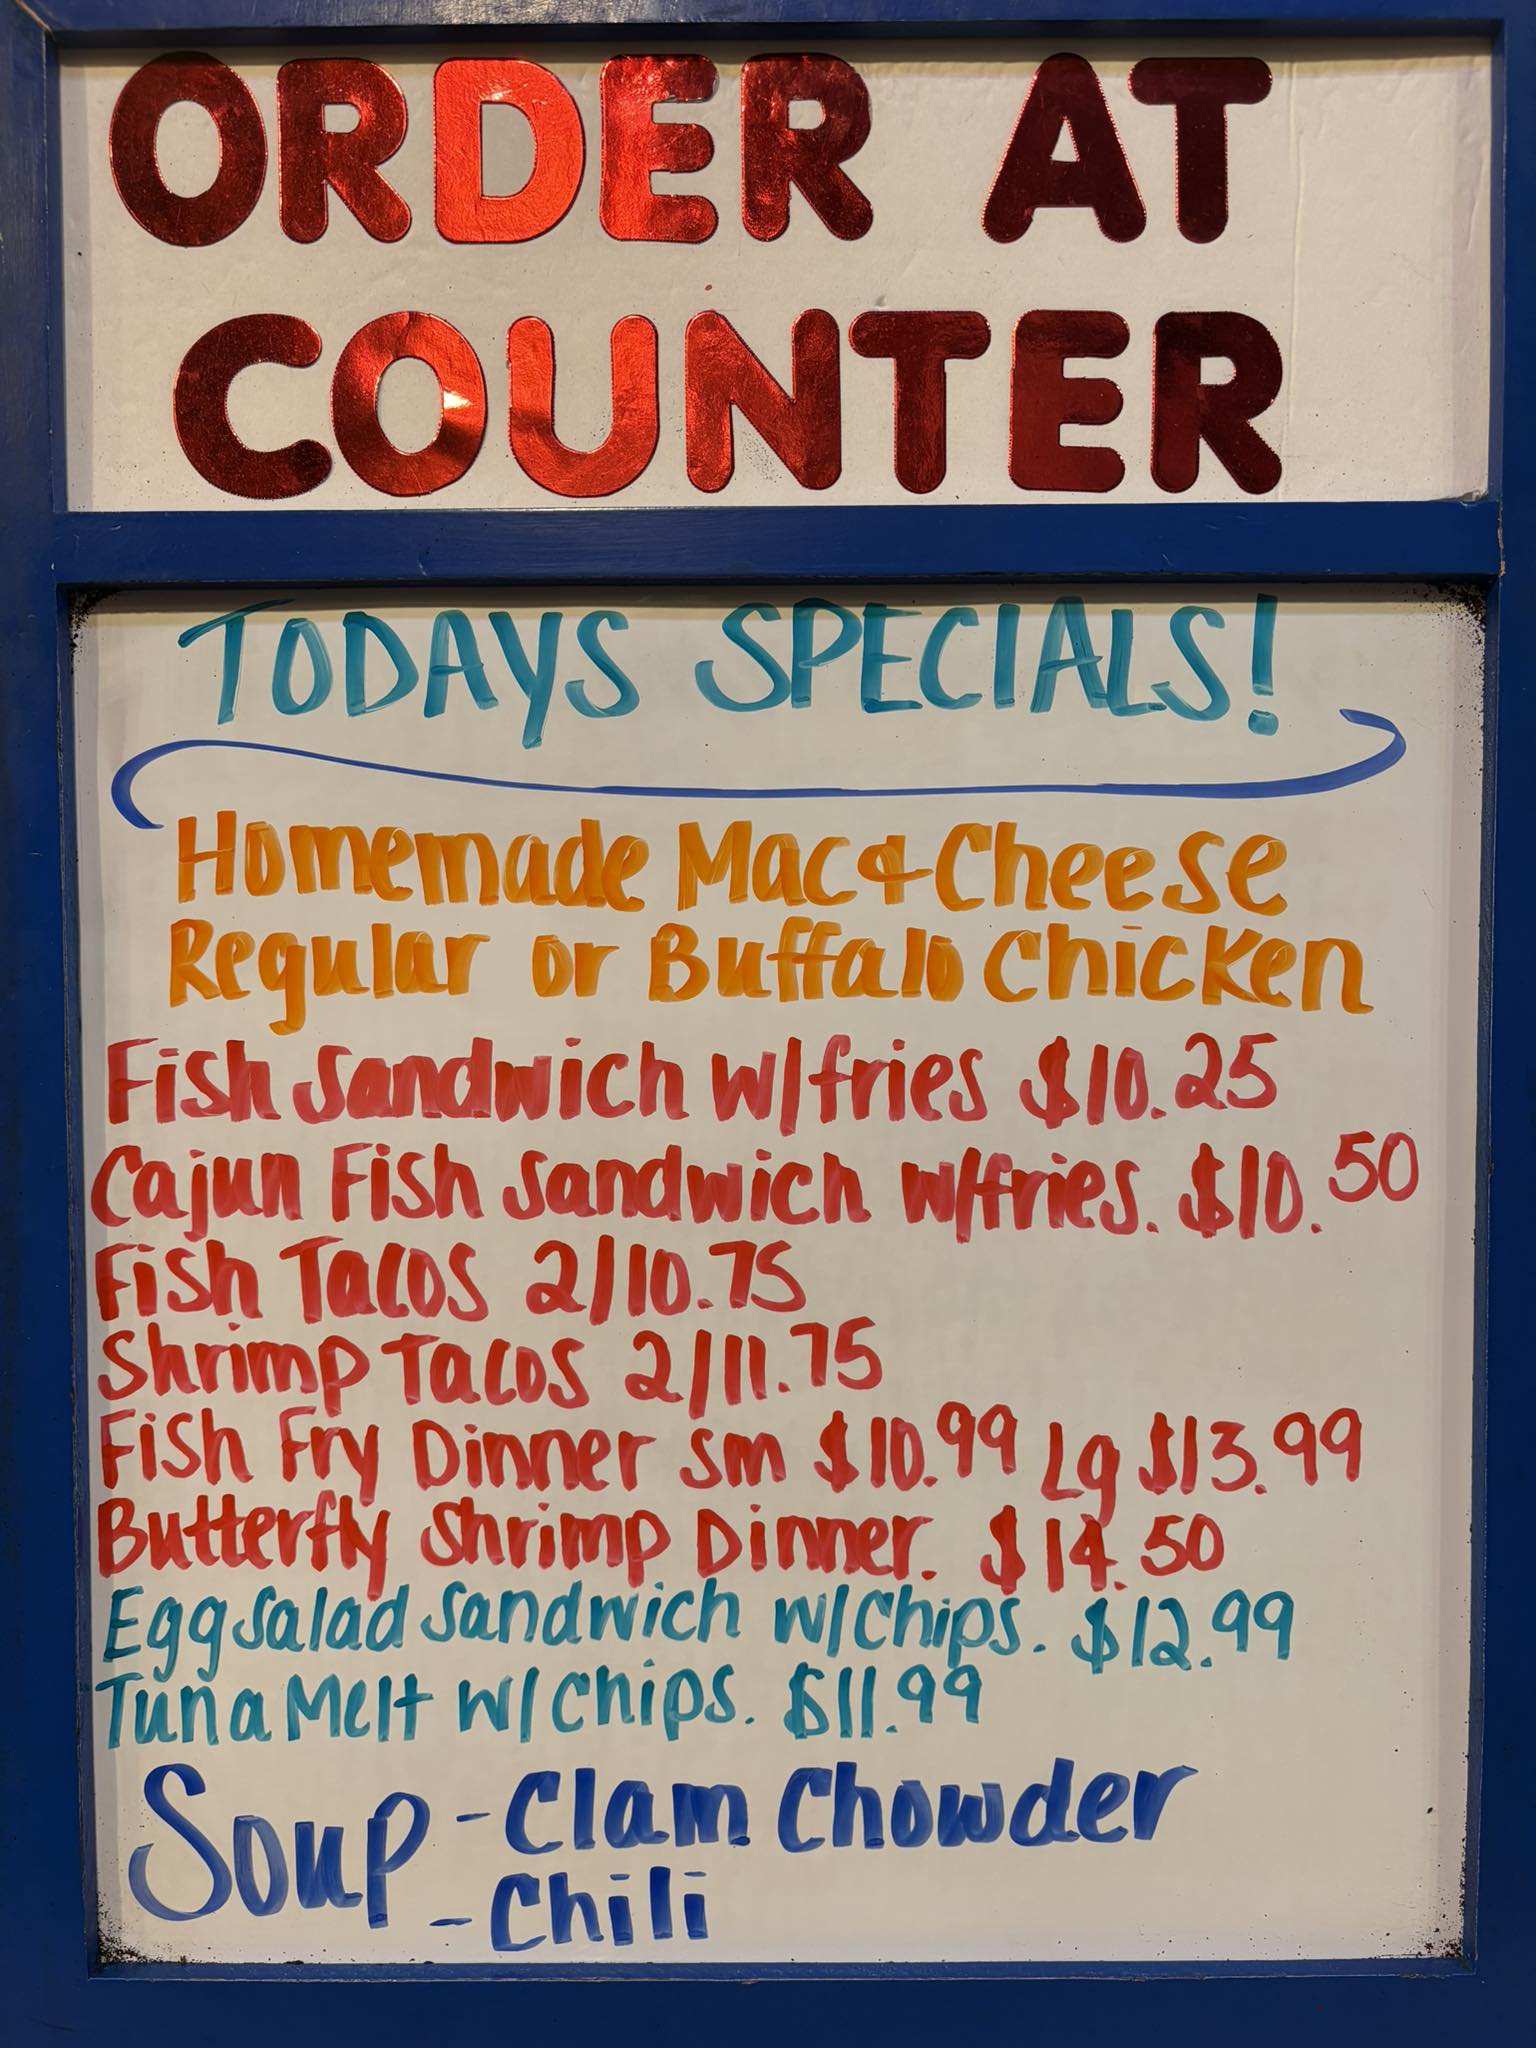 ORDER AT
COUNTER
TODAYS SPECIALS!
Homemade Mac & Cheese
Regular or Buffalo Chicken
Fish Sandwich w/fries $10.25
Cajun Fish Sandwich w/fries. $10.50
Fish Tacos 2/10.75
Shrimp Tacos 2/11.75
Fish Fry Dinner sm $10.99 Lg $13.99
Butterfly Shrimp Dinner. $14.50
Egg Salad Sandwich w/chips. $12.99
Tuna Melt w/chips. $11.99
Soup - Clam Chowder
- Chili